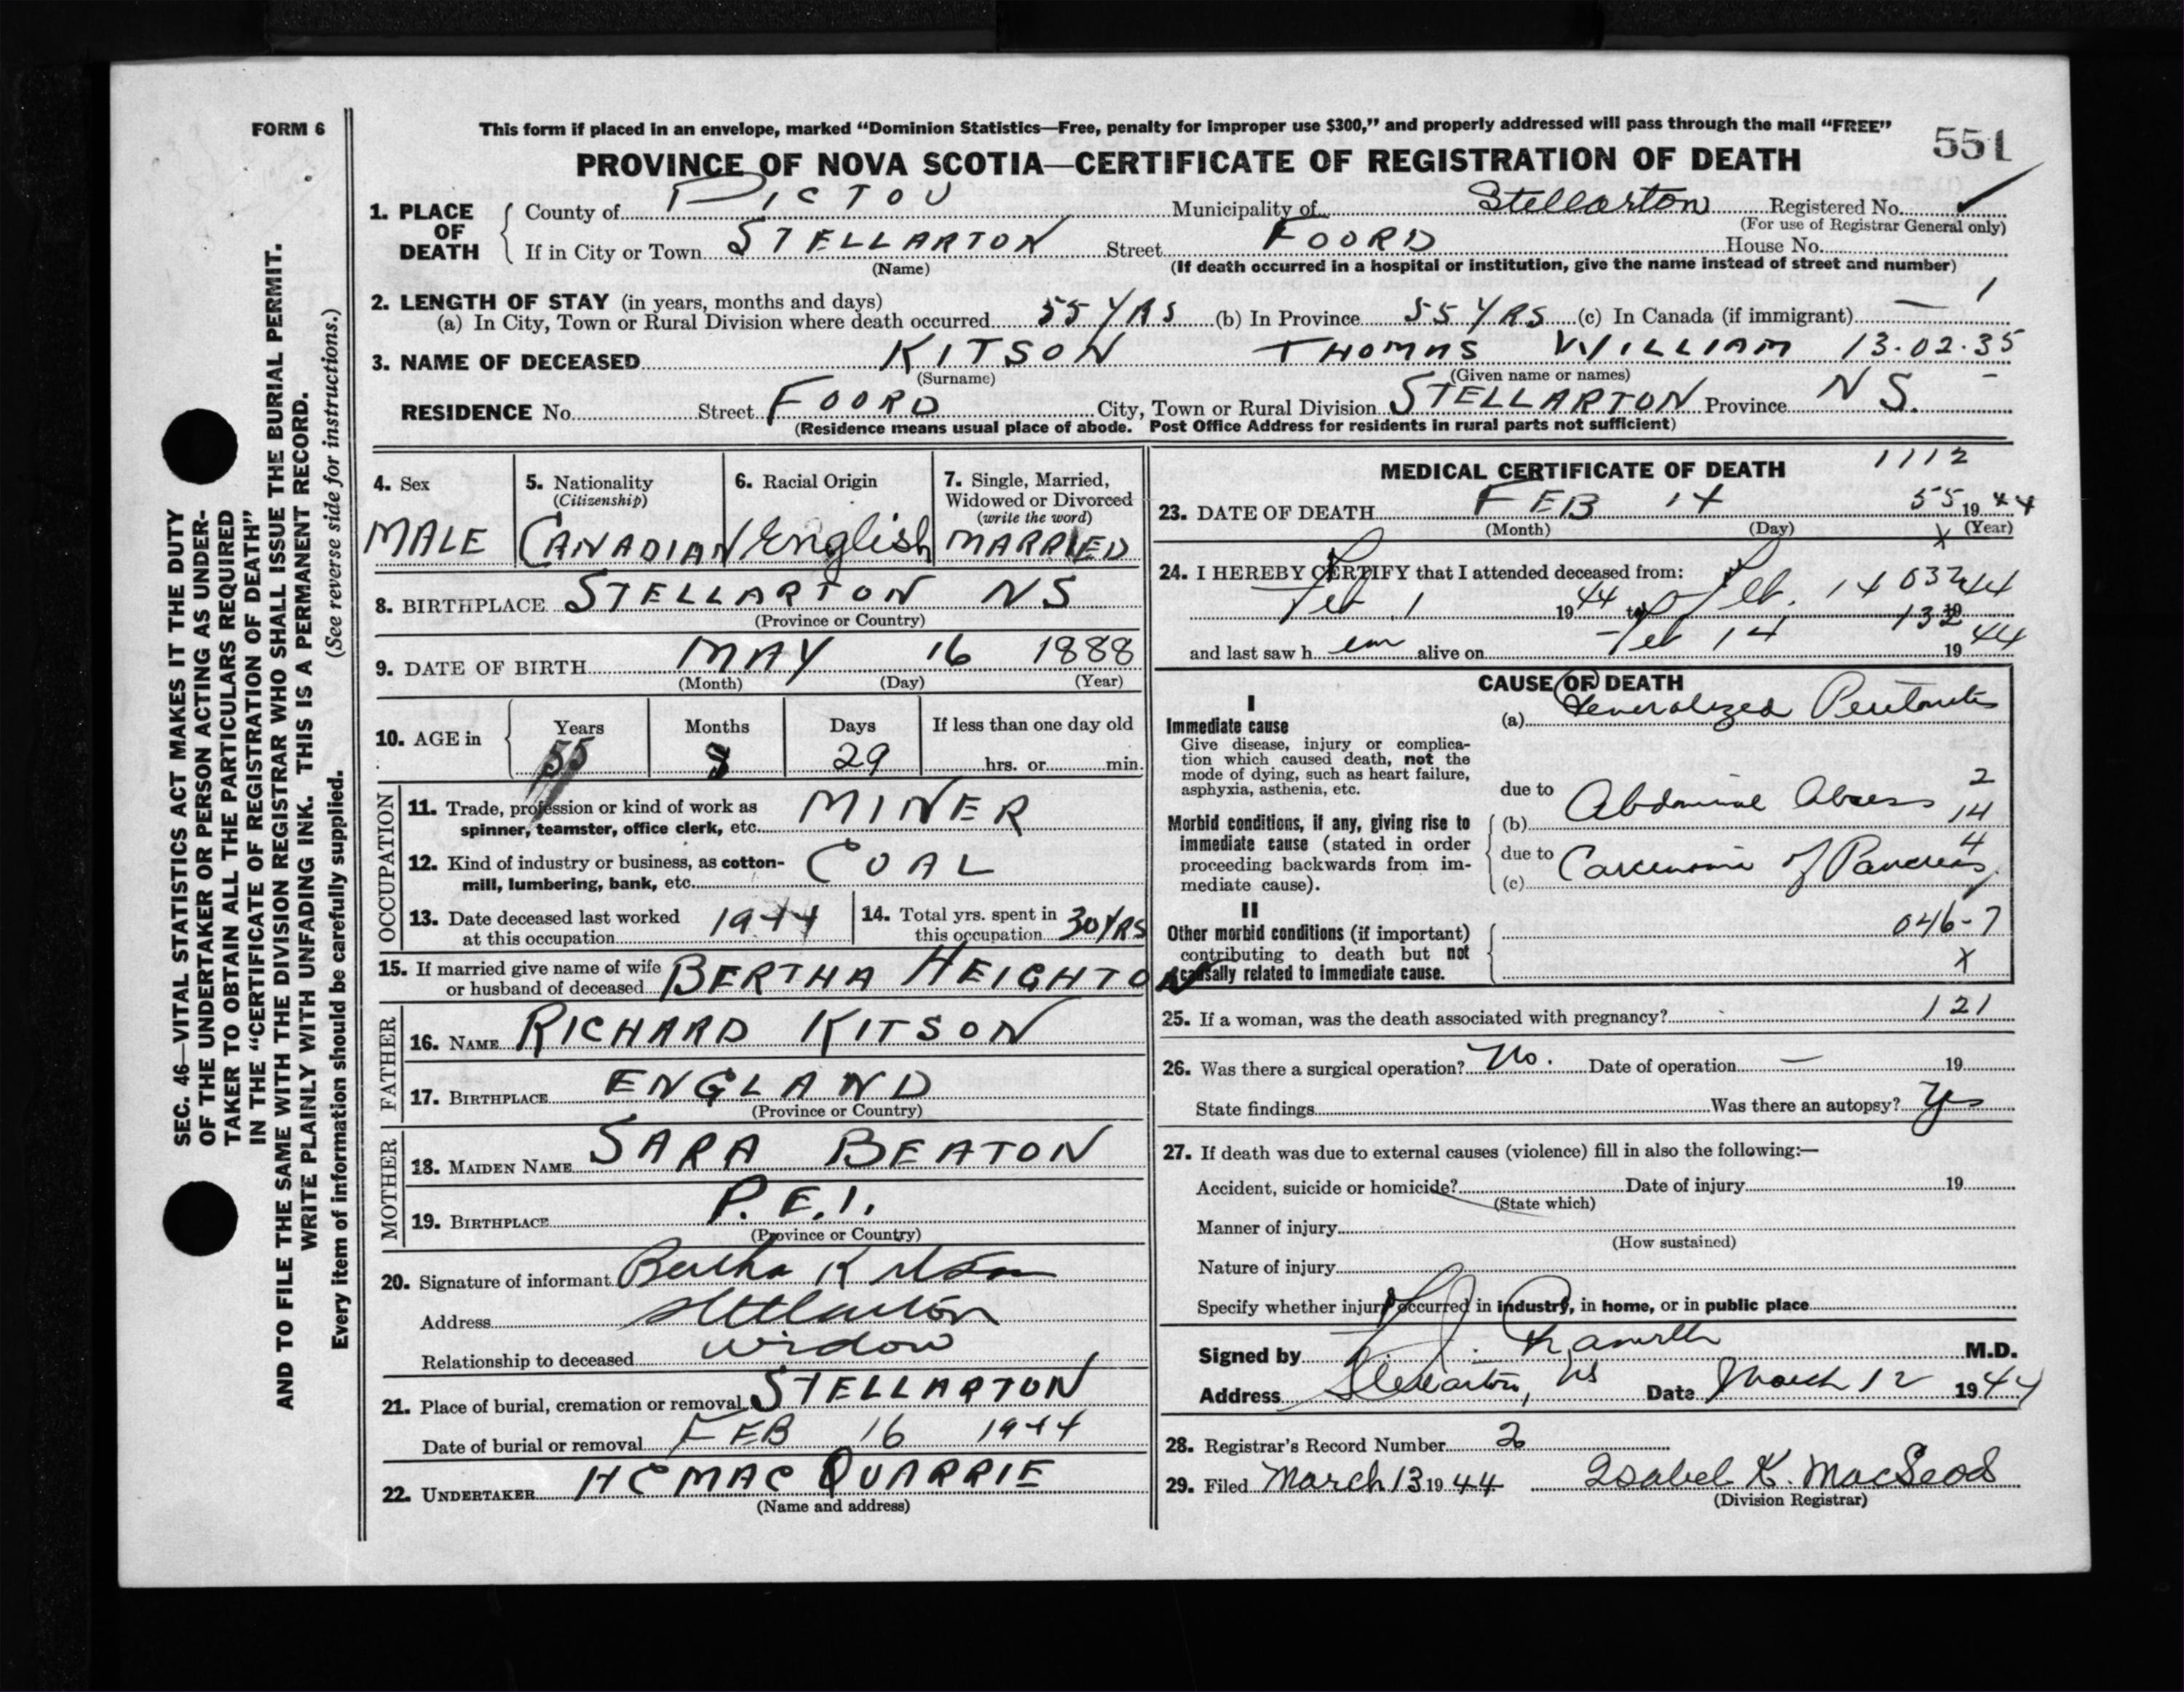 FORM 6
This form if placed in an envelope, marked “Dominion Statistics—Free, penalty for improper use $300,” and properly addressed will pass through the mail “FREE”
551
PROVINCE OF NOVA SCOTIA—CERTIFICATE OF REGISTRATION OF DEATH
SEC. 46—VITAL STATISTICS ACT MAKES IT THE DUTY
OF THE UNDERTAKER OR PERSON ACTING AS UNDER-
TAKER TO OBTAIN ALL THE PARTICULARS REQUIRED
IN THE “CERTIFICATE OF REGISTRATION OF DEATH”
AND TO FILE THE SAME WITH THE DIVISION REGISTRAR WHO SHALL ISSUE THE BURIAL PERMIT.
WRITE PLAINLY WITH UNFADING INK. THIS IS A PERMANENT RECORD.
Every item of information should be carefully supplied. (See reverse side for instructions.)
1. PLACE OF DEATH
County of PICTOU Municipality of Stellarton Registered No. ✓
(For use of Registrar General only)
If in City or Town STELLARTON Street FOORD House No.
(Name) (If death occurred in a hospital or institution, give the name instead of street and number)
2. LENGTH OF STAY (in years, months and days)
(a) In City, Town or Rural Division where death occurred 55 YRS (b) In Province 55 YRS (c) In Canada (if immigrant) — 1
3. NAME OF DECEASED KITSON THOMAS WILLIAM 13.02.35
(Surname) (Given name or names)
RESIDENCE No. Street FOORD City, Town or Rural Division STELLARTON Province N S.
(Residence means usual place of abode. Post Office Address for residents in rural parts not sufficient)
4. Sex
MALE
5. Nationality
(Citizenship)
CANADIAN
6. Racial Origin
English
7. Single, Married,
Widowed or Divorced
(write the word)
MARRIED
8. BIRTHPLACE STELLARTON NS
(Province or Country)
9. DATE OF BIRTH MAY 16 1888
(Month) (Day) (Year)
10. AGE in
Years Months Days If less than one day old
55 8 29 hrs. or min.
OCCUPATION
11. Trade, profession or kind of work as
spinner, teamster, office clerk, etc. MINER
12. Kind of industry or business, as cotton-
mill, lumbering, bank, etc. COAL
13. Date deceased last worked
at this occupation 1944
14. Total yrs. spent in
this occupation 30 YRS
15. If married give name of wife
or husband of deceased BERTHA HEIGHTON
FATHER
16. NAME RICHARD KITSON
17. BIRTHPLACE ENGLAND
(Province or Country)
MOTHER
18. MAIDEN NAME SARA BEATON
19. BIRTHPLACE P.E.I.
(Province or Country)
20. Signature of informant Bertha Kitson
Address Stellarton
Relationship to deceased widow
21. Place of burial, cremation or removal STELLARTON
Date of burial or removal FEB 16 1944
22. UNDERTAKER H C MAC QUARRIE
(Name and address)
MEDICAL CERTIFICATE OF DEATH 1112
23. DATE OF DEATH FEB 14 55 1944
(Month) (Day) (Year)
X
24. I HEREBY CERTIFY that I attended deceased from:
Feb 1 1944 to Feb. 14 032 1944
132
and last saw h em alive on Feb 14 1944
CAUSE OF DEATH
I
Immediate cause
Give disease, injury or complica-
tion which caused death, not the
mode of dying, such as heart failure,
asphyxia, asthenia, etc.
(a) Generalized Peritonitis
due to 2
Morbid conditions, if any, giving rise to
immediate cause (stated in order
proceeding backwards from im-
mediate cause).
(b) Abdominal Abcess 14
due to 4
(c) Carcinoma of Pancreas
II
Other morbid conditions (if important)
contributing to death but not
causally related to immediate cause.
046-7
X
25. If a woman, was the death associated with pregnancy? 121
26. Was there a surgical operation? No. Date of operation — 19
State findings Was there an autopsy? Yes
27. If death was due to external causes (violence) fill in also the following:—
Accident, suicide or homicide? Date of injury 19
(State which)
Manner of injury
(How sustained)
Nature of injury
Specify whether injury occurred in industry, in home, or in public place
Signed by M.D.
Address Stellarton, NS Date March 12 1944
28. Registrar's Record Number 2
29. Filed March 13 1944 Isabel K. MacLeod
(Division Registrar)